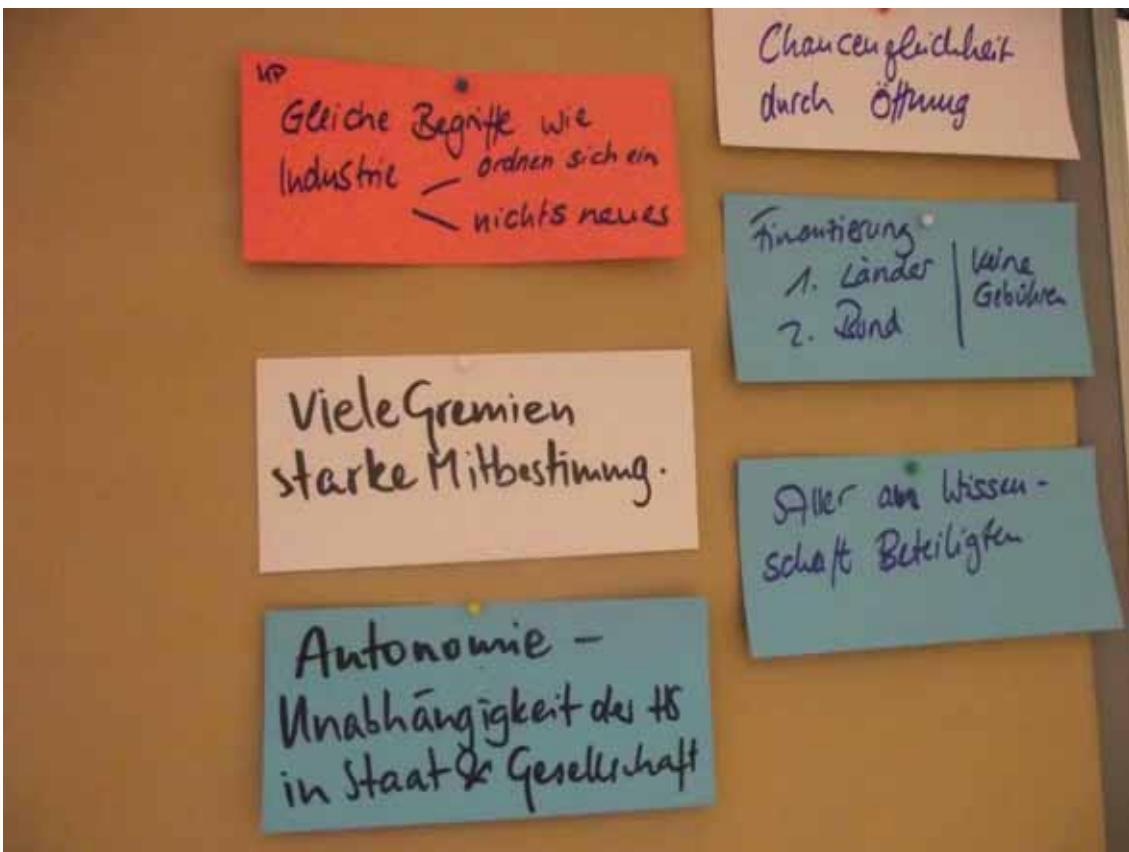 HP
Gleiche Begriffe wie
Industrie
ordnen sich ein
nichts neues
Viele Gremien
starke Mitbestimmung.
Autonomie –
Unabhängigkeit der HS
in Staat & Gesellschaft
Chancengleichheit
durch Öffnung
Finanzierung
1. Länder
2. Bund
keine
Gebühren
Aller am Wissen-
schaft Beteiligten